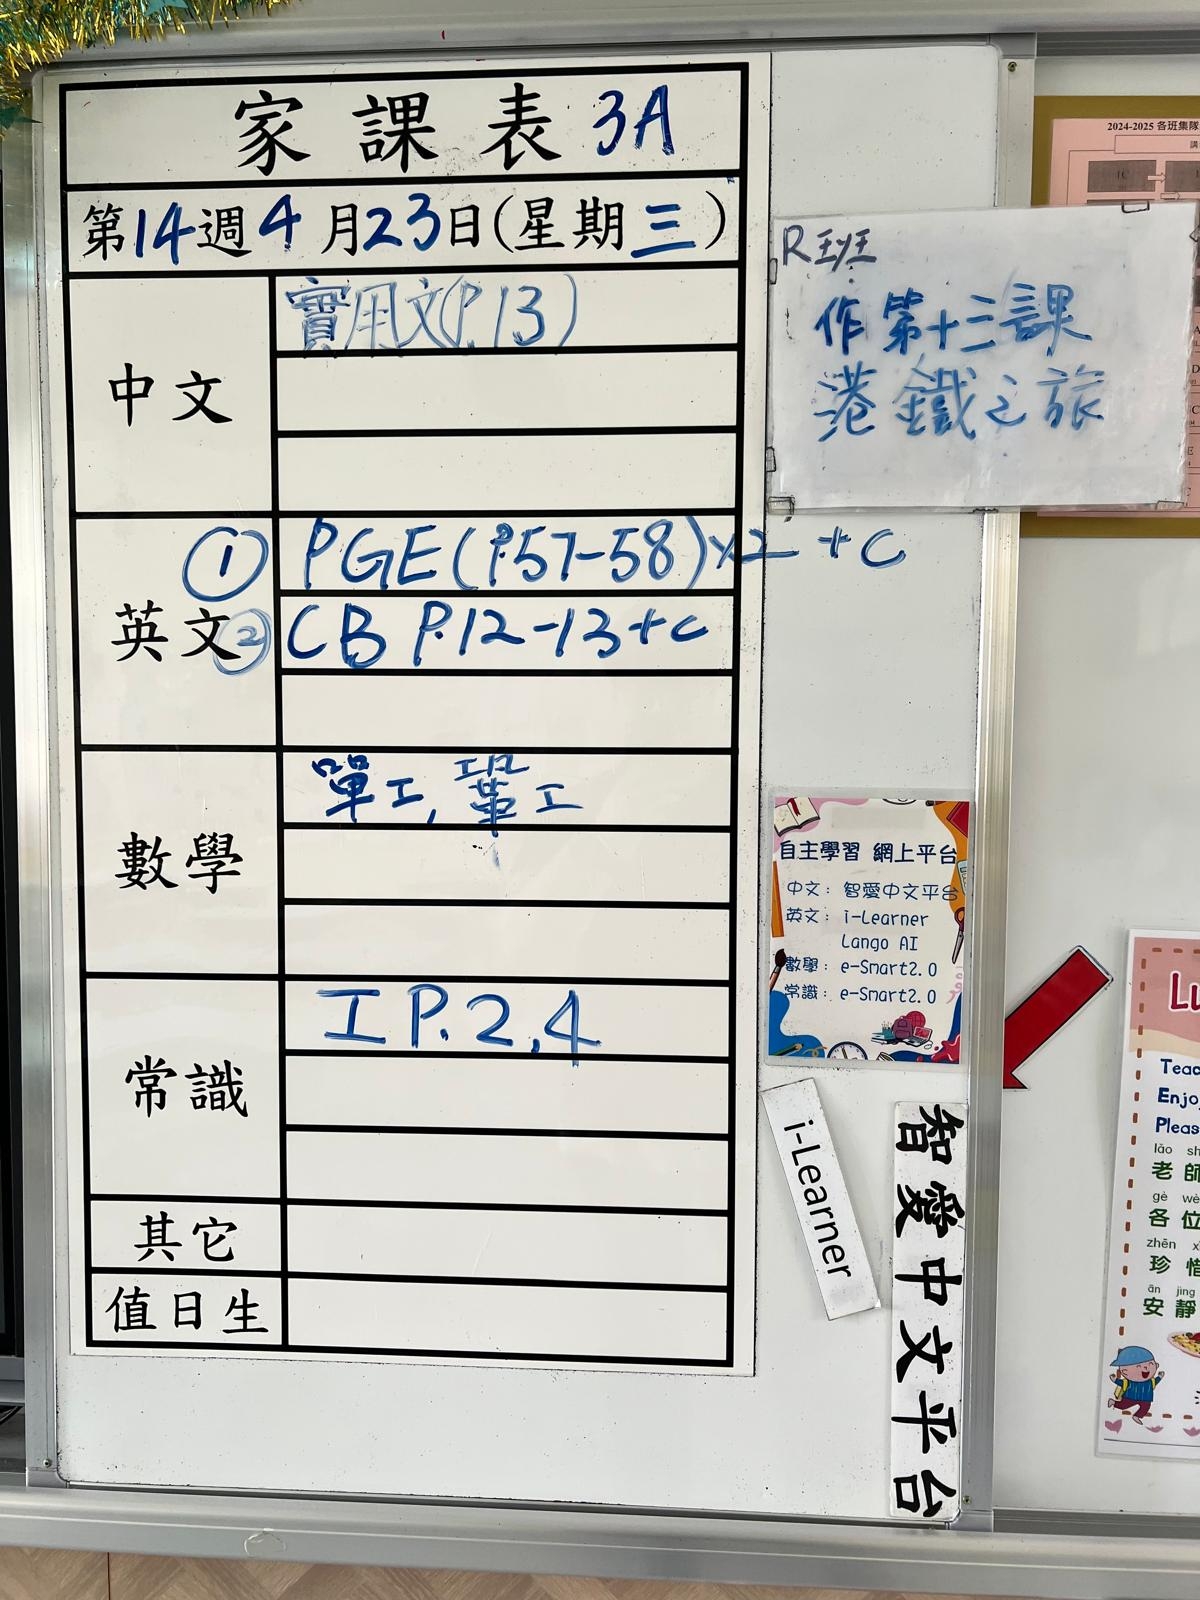 家課表 3A
第14週4月23日(星期三)
中文
實用文(P.13)
英文
① PGE (P.57-58)×2 +C
② CB P.12-13+C
數學
單工, 鞏工
常識
工 P.2,4
其它
值日生
R班
作第十三課
港鐵之旅
2024-2025 各班集隊
自主學習 網上平台
中文: 智愛中文平台
英文: i-Learner
Lango AI
數學: e-Smart2.0
常識: e-Smart2.0
i-Learner
智愛中文平台
Lu
Teac
Enjo
Pleas
lǎo sh
老師
gè wè
各位
zhēn x
珍惜
ān jìng
安靜